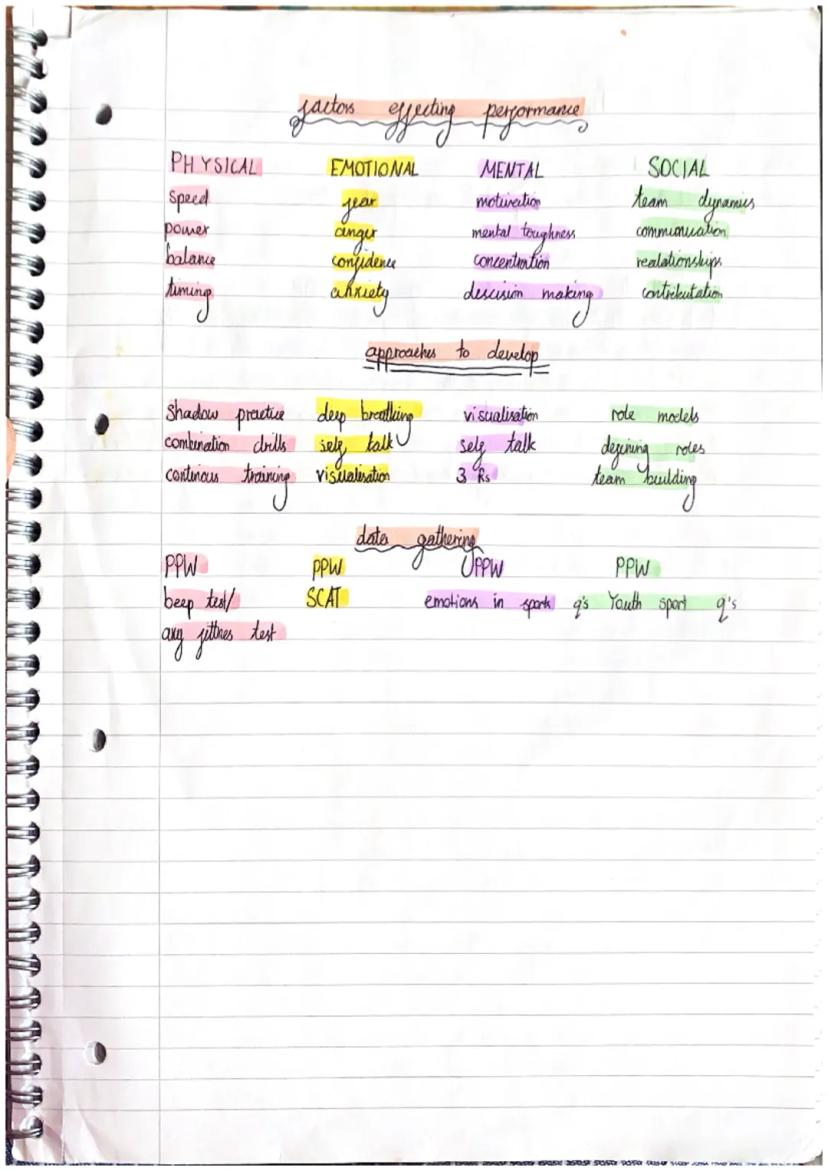 factors effecting performance
PHYSICAL EMOTIONAL MENTAL SOCIAL
speed fear motivation team dynamics
power anger mental toughness communication
balance confidence concentration realationships
timing anxiety descision making contributation
approaches to develop
Shadow practice deep breathing visualisation role models
combination drills self talk self talk defining roles
continous training visualisation 3 Rs team building
data gathering
PPW PPW PPW PPW
beep test/ SCAT emotions in sport q's Youth sport q's
fitnes test